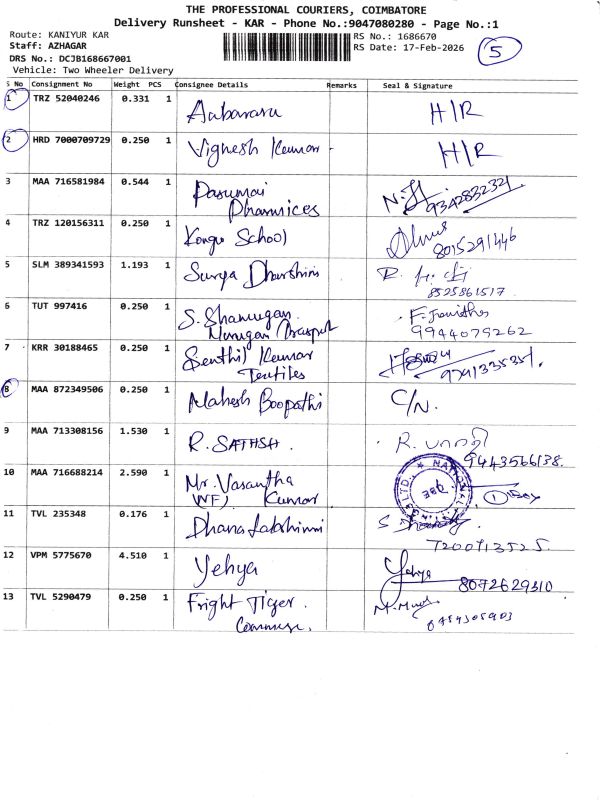 THE PROFESSIONAL COURIERS, COIMBATORE
Delivery Runsheet - KAR - Phone No.:9047080280 - Page No.:1
Route: KANIYUR KAR
RS No.: 1686670
Staff: AZHAGAR
RS Date: 17-Feb-2026
5
DRS No.: DCJB168667001
Vehicle: Two Wheeler Delivery
S No Consignment No Weight PCS Consignee Details Remarks Seal & Signature
1 TRZ 52040246 0.331 1 Aabaranu H/R
2 HRD 7000709729 0.250 1 Vignesh Kumar H/R
3 MAA 716581984 0.544 1 Pasumai
Pharmices 9342832321
4 TRZ 120156311 0.250 1 Kongu School
8015291446
5 SLM 389341593 1.193 1 Surya Dharshini
8525861517
6 TUT 997416 0.250 1 S. Shanmugan
Murugan
9944079262
7 KRR 30188465 0.250 1 Senthil Kumar
Textiles
8 MAA 872349506 0.250 1 Mahesh Boopathi C/N.
9 MAA 713308156 1.530 1 R. SATHSH. R. பாரதி
9443566138.
10 MAA 716688214 2.590 1 Mr. Vasantha
(WF) Kumar 1 Box
11 TVL 235348 0.176 1 Dhana Lakshimi
7200713525.
12 VPM 5775670 4.510 1 Yehya Yehya
8072629310
13 TVL 5290479 0.250 1 Fright Tiger.